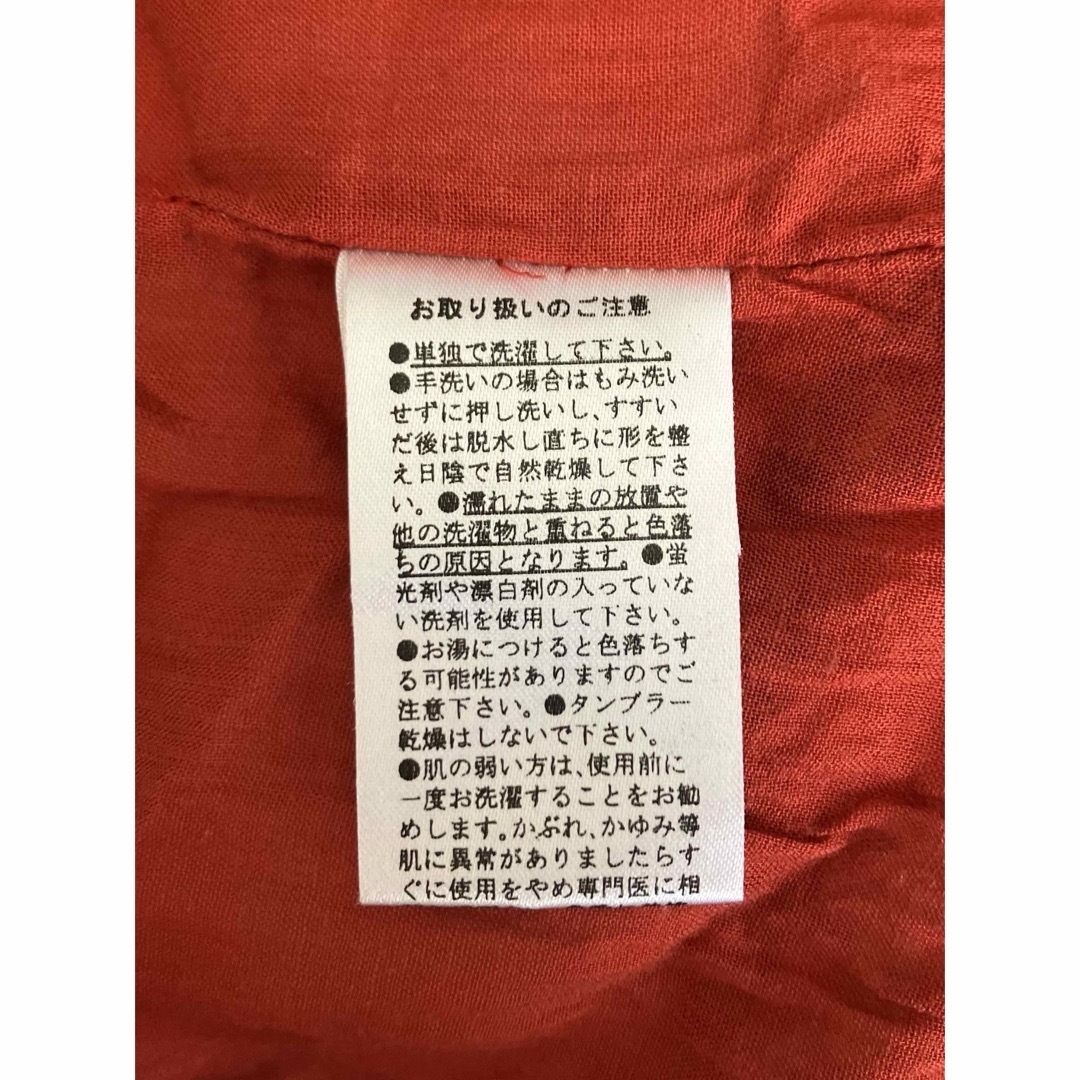 お取り扱いのご注意
●単独で洗濯して下さい。
●手洗いの場合はもみ洗い
せずに押し洗いし、すすい
だ後は脱水し直ちに形を整
え日陰で自然乾燥して下さ
い。●濡れたままの放置や
他の洗濯物と重ねると色落
ちの原因となります。●蛍
光剤や漂白剤の入っていな
い洗剤を使用して下さい。
●お湯につけると色落ちす
る可能性がありますのでご
注意下さい。●タンブラー
乾燥はしないで下さい。
●肌の弱い方は、使用前に
一度お洗濯することをお勧
めします。かぶれ、かゆみ等
肌に異常がありましたらす
ぐに使用をやめ専門医に相